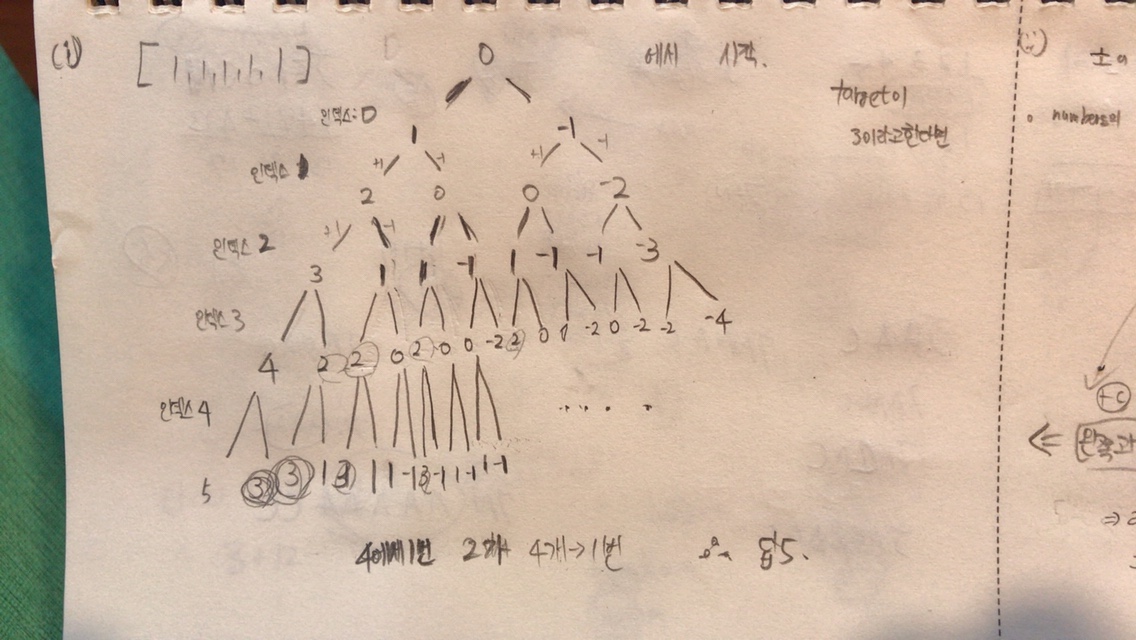 (i) [1,1,1,1,1] 0 에서 시작.
target이
3이라고한다면
인덱스:0
1 -1
+1 -1 +1 -1
인덱스 1
2 0 0 -2
+1 -1
인덱스 2
3 1 1 -1 1 -1 -1 -3
인덱스 3
4 2 2 0 2 0 0 -2 2 0 0 -2 0 -2 -2 -4
인덱스 4
5 3 3 1 3 1 1 -1 3 -1 1 -1 1 -1
4에서 1번 2가 4개→1번 ∴ 답 5.
(ii)
±의
numbers의
+c
⇐ 왼쪽과
⇒